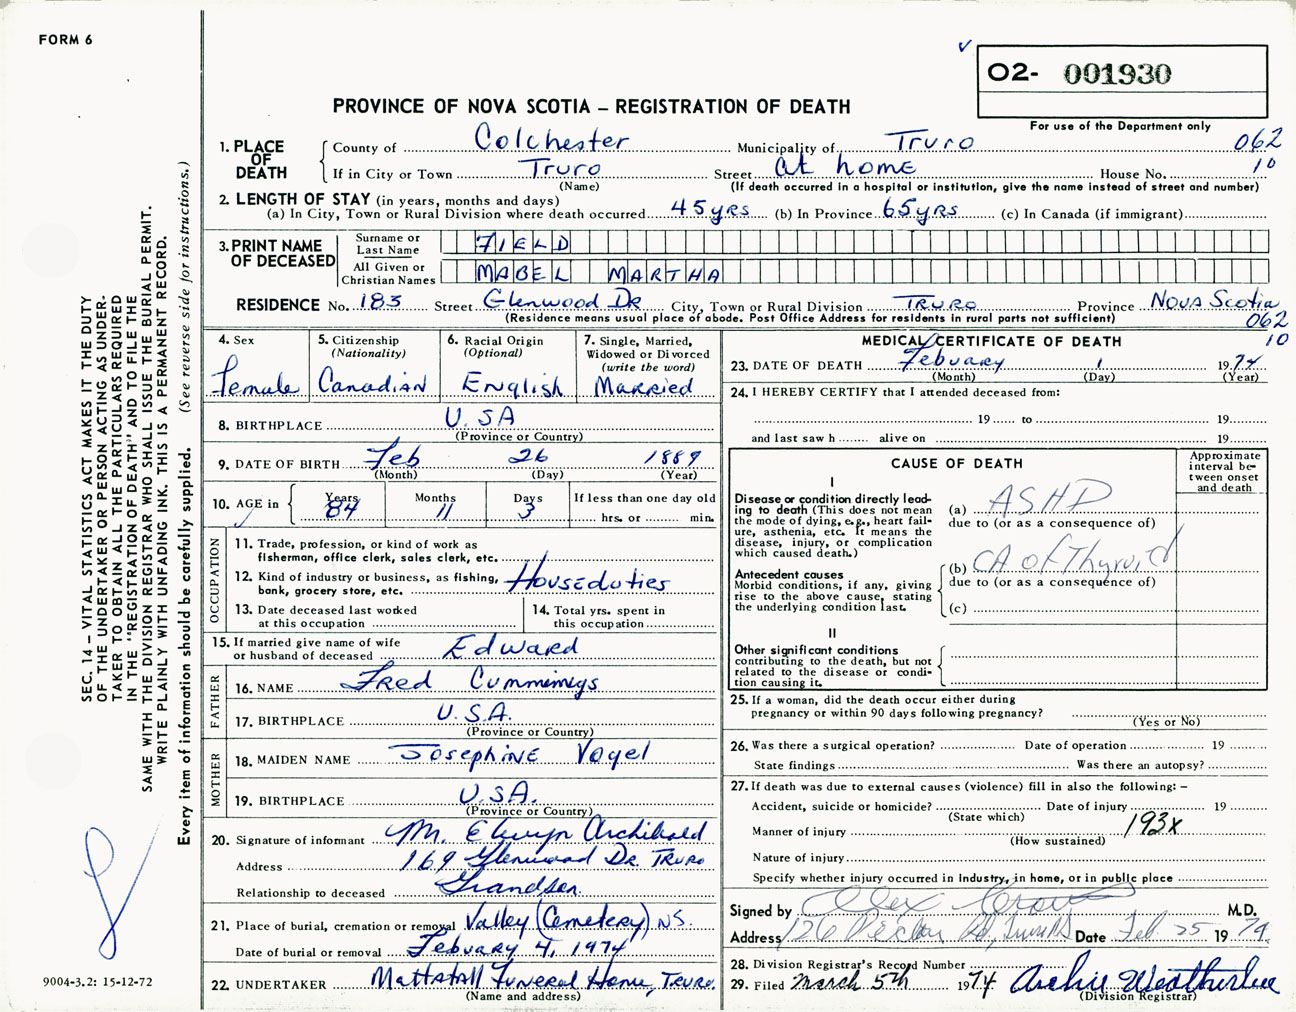 FORM 6
O2- 001930
PROVINCE OF NOVA SCOTIA – REGISTRATION OF DEATH
For use of the Department only
1. PLACE OF DEATH
County of Colchester Municipality of Truro 062
If in City or Town Truro Street at home House No. 10
(Name) (If death occurred in a hospital or institution, give the name instead of street and number)
2. LENGTH OF STAY (in years, months and days)
(a) In City, Town or Rural Division where death occurred 45 yrs (b) In Province 65 yrs (c) In Canada (if immigrant)
3. PRINT NAME OF DECEASED
Surname or Last Name FIELD
All Given or Christian Names MABEL MARTHA
RESIDENCE No. 183 Street Glenwood Dr City, Town or Rural Division TRURO Province Nova Scotia
(Residence means usual place of abode. Post Office Address for residents in rural parts not sufficient) 062
10
4. Sex Female
5. Citizenship (Nationality) Canadian
6. Racial Origin (Optional) English
7. Single, Married, Widowed or Divorced (write the word) Married
8. BIRTHPLACE U.SA
(Province or Country)
9. DATE OF BIRTH Feb 26 1889
(Month) (Day) (Year)
10. AGE in Years 84 Months 11 Days 3 If less than one day old
hrs. or min.
OCCUPATION
11. Trade, profession, or kind of work as
fisherman, office clerk, sales clerk, etc.
12. Kind of industry or business, as fishing, Houseduties
bank, grocery store, etc.
13. Date deceased last worked
at this occupation
14. Total yrs. spent in
this occupation
15. If married give name of wife
or husband of deceased Edward
FATHER
16. NAME Fred Cummimgs
17. BIRTHPLACE U.S.A.
(Province or Country)
MOTHER
18. MAIDEN NAME Josephine Vogel
19. BIRTHPLACE U.S.A.
(Province or Country)
20. Signature of informant M. Elwyn Archibald
Address 169 Glenwood Dr. Truro
Relationship to deceased Grandson
21. Place of burial, cremation or removal Valley (Cemetery) N.S.
Date of burial or removal Febuary 4, 1974
22. UNDERTAKER Mattatall Funeral Home, Truro.
(Name and address)
MEDICAL CERTIFICATE OF DEATH
23. DATE OF DEATH Febuary 1 1974
(Month) (Day) (Year)
24. I HEREBY CERTIFY that I attended deceased from:
19 to 19
and last saw h alive on 19
CAUSE OF DEATH
Approximate interval between onset and death
I
Disease or condition directly lead-
ing to death (This does not mean
the mode of dying, e.g., heart fail-
ure, asthenia, etc. It means the
disease, injury, or complication
which caused death.)
(a) ASHD
due to (or as a consequence of)
Antecedent causes
Morbid conditions, if any, giving
rise to the above cause, stating
the underlying condition last.
(b) CA of Thyroid
due to (or as a consequence of)
(c)
II
Other significant conditions
contributing to the death, but not
related to the disease or condi-
tion causing it.
25. If a woman, did the death occur either during
pregnancy or within 90 days following pregnancy?
(Yes or No)
26. Was there a surgical operation? Date of operation 19
State findings Was there an autopsy?
27. If death was due to external causes (violence) fill in also the following: –
Accident, suicide or homicide? Date of injury 19
(State which)
Manner of injury 193x
(How sustained)
Nature of injury
Specify whether injury occurred in industry, in home, or in public place
Signed by Alex M.D.
Address 126 Rd, Date Feb. 25 1974.
28. Division Registrar's Record Number
29. Filed March 5th 1974 Archie Weatherbee
(Division Registrar)
SEC. 14 – VITAL STATISTICS ACT MAKES IT THE DUTY
OF THE UNDERTAKER OR PERSON ACTING AS UNDER-
TAKER TO OBTAIN ALL THE PARTICULARS REQUIRED
IN THE "REGISTRATION OF DEATH" AND TO FILE THE
SAME WITH THE DIVISION REGISTRAR WHO SHALL ISSUE THE BURIAL PERMIT.
WRITE PLAINLY WITH UNFADING INK. THIS IS A PERMANENT RECORD.
Every item of information should be carefully supplied. (See reverse side for instructions.)
9004-3.2: 15-12-72